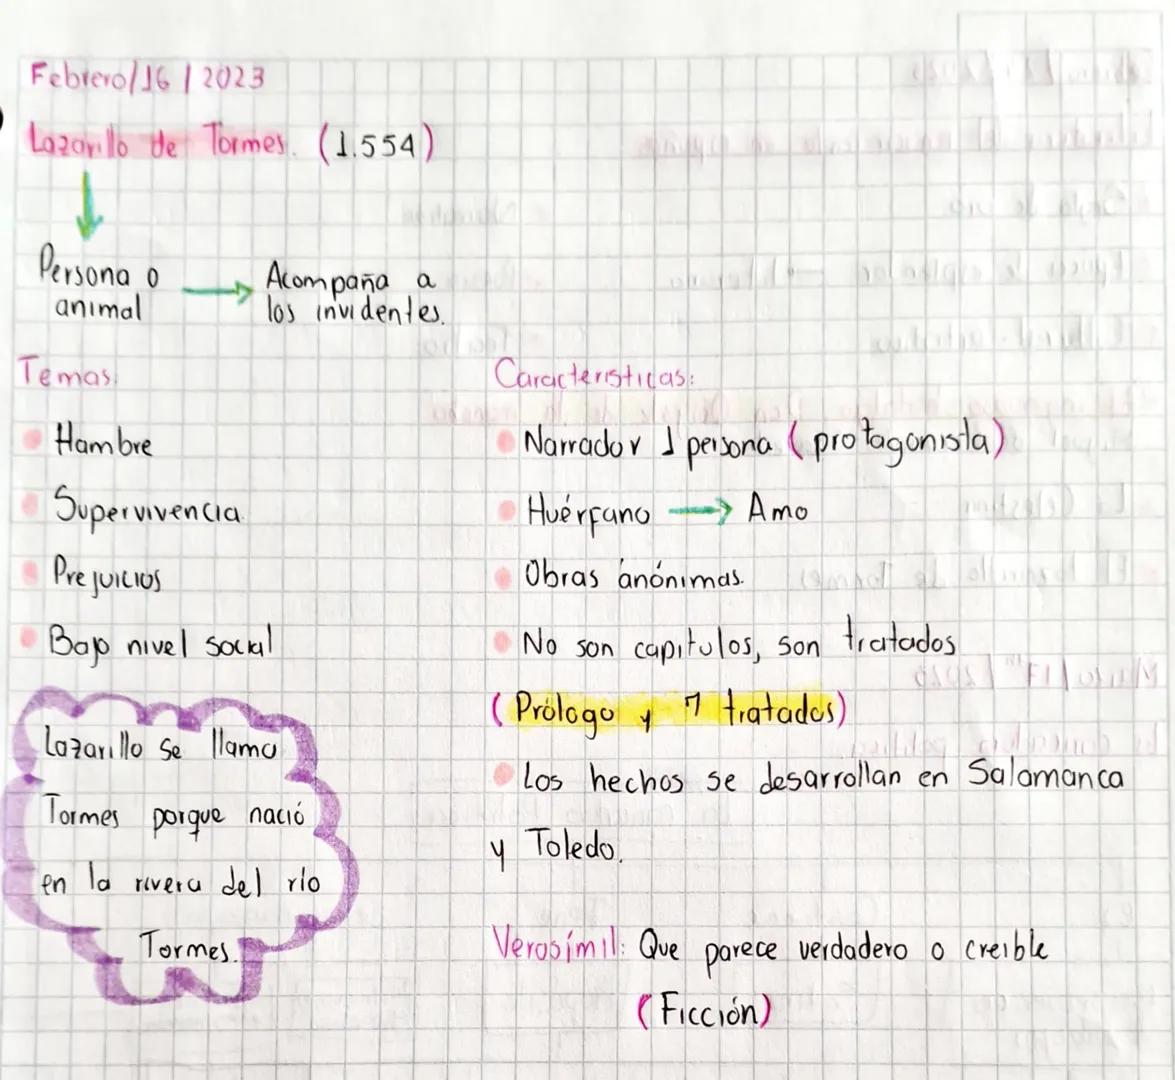 Febrero/16/2023
Lazarillo de Tormes. (1.554)
Persona o
animal
Acompaña a
los invidentes.
Temas:
Hambre
Supervivencia
Prejuicios
Bajo nivel social
Lazarillo se llama
Tormes porque nació
en la rivera del río
Tormes.
Características:
Narrador 1 persona (protagonista)
Huérfano → Amo
Obras anónimas.
No son capitulos, son tratados
(Prólogo y 7 tratados)
Los hechos se desarrollan en Salamanca
y Toledo.
Verosímil: Que parece verdadero o creible
(Ficción)